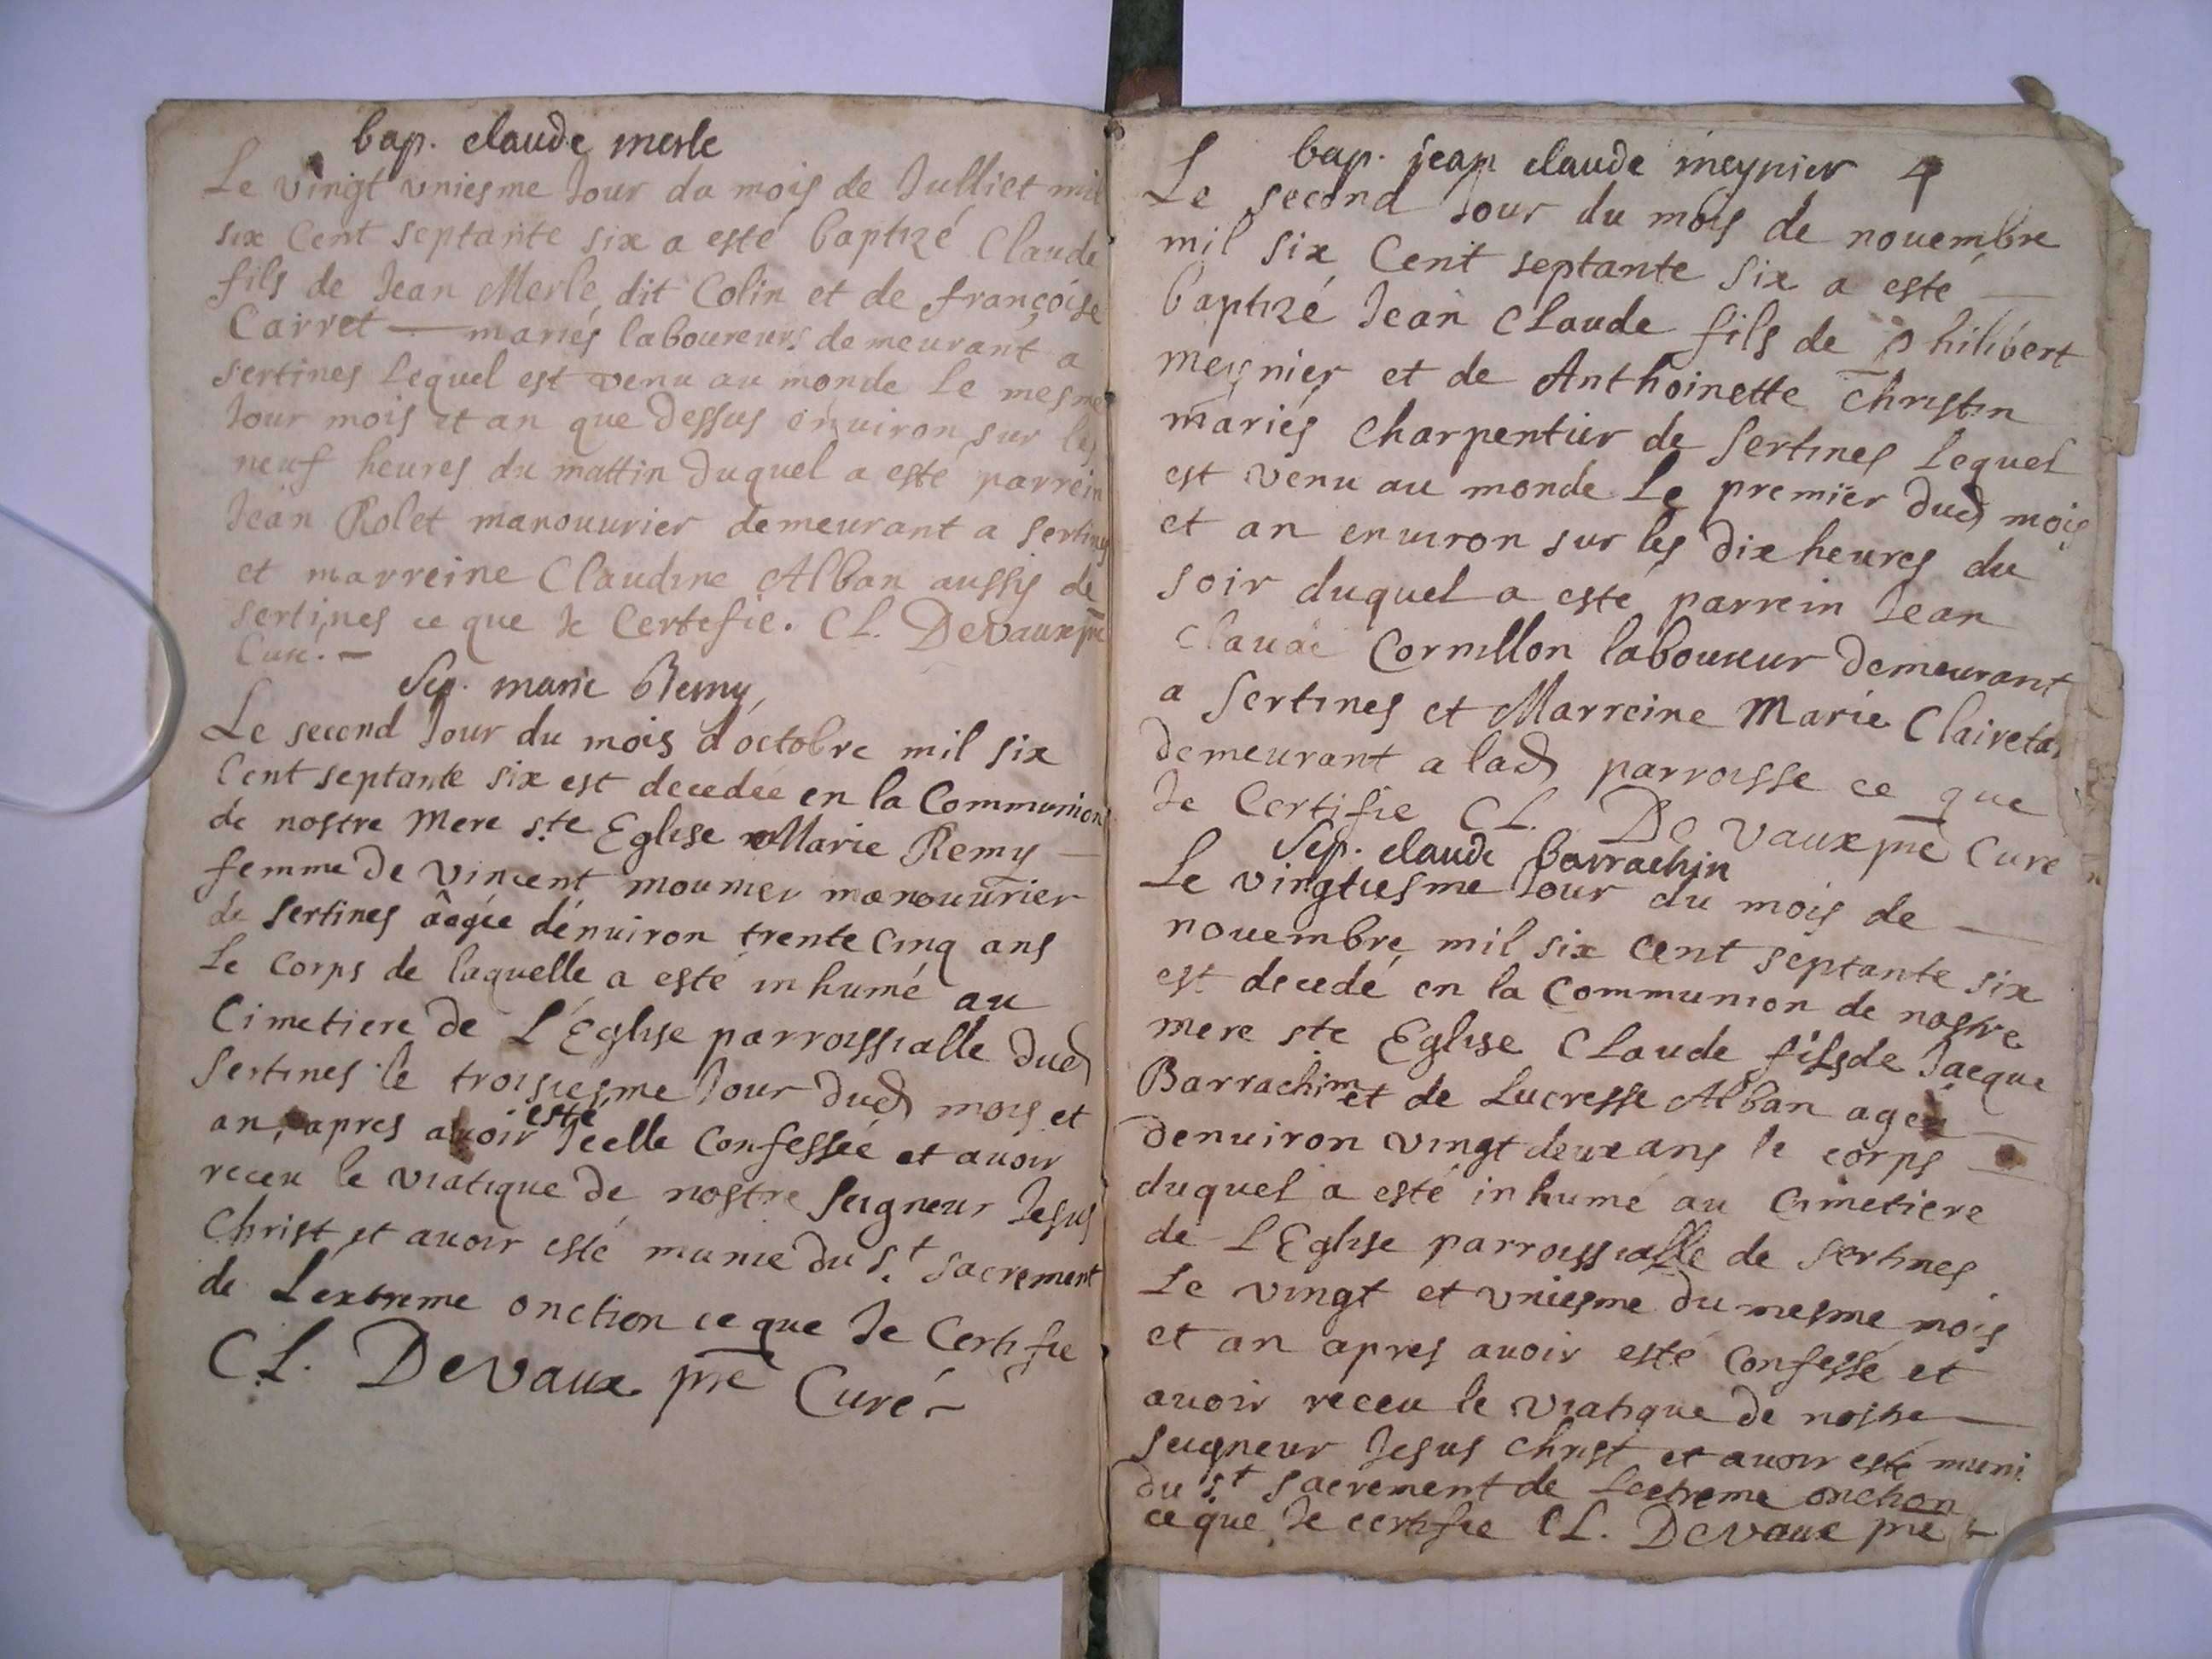 bap. claude merle
Le vingt vniesme Jour du mois de Julliet mil
six Cent septante six a esté baptizé Claude
fils de Jean Merle dit Colin et de françoise
Carret — mariés laboureurs demeurant a
sertines Lequel est venu au monde Le mesme
Jour mois et an que dessus enuiron sur les
neuf heures du mattin duquel a esté parrein
Jean Rolet manouurier demeurant a sertines
et marreine Claudine Alban aussy de
sertines ce que Je Certefie. CL. DeVaux pre
Curé. —
Sep. marie Remy
Le second Jour du mois d'octobre mil six
Cent septante six est decedée en la Communion
de nostre Mere ste Eglise Marie Remy —
femme de Vincent mounier manouurier
de sertines âagée dénuiron trente Cinq ans
Le Corps de laquelle a esté inhumé au
Cimetiere de L'Eglise parroissialle dud
Sertines le troisiesme Jour dud mois et
an, apres auoir esté Icelle Confessée et auoir
receu le viatique de nostre Seigneur Jesus
Christ et auoir esté munie du St sacrement
de Lextreme onction ce que Je Certifie
CL. DeVaux pre Curé -
bap. jean claude meynier 4
Le second Jour du mois de nouembre
mil six Cent septante six a este —
baptizé Jean Claude fils de philibert
meynier et de Anthoinette Christin
mariés Charpentier de Sertines Lequel
est venu au monde Le premier dud mois
et an enuiron sur les dix heures du
soir duquel a esté parrein Jean
Claude Cornillon laboureur demeurant
a Sertines et Marreine Marie Claireta
demeurant a lad parroisse ce que
Je Certifie CL. DeVaux pre Curé
Sep. claude barrachin
Le vingtiesme Jour du mois de —
nouembre mil six Cent septante six
est decedé en la Communion de nostre
mere ste Eglise Claude fils de Jacque
Barrachim et de Lucresse Alban agé —
denuiron vingt deux ans le corps —
duquel a esté inhumé au Cimetiere
de L'Eglise parroissialle de sertines
Le vingt et vniesme du mesme mois
et an apres auoir esté Confessé et
auoir receu le viatique de nostre —
Seigneur Jesus Christ et auoir esté muni
du St Sacrement de Lextreme onction
ce que Je certifie CL. DeVaux pre